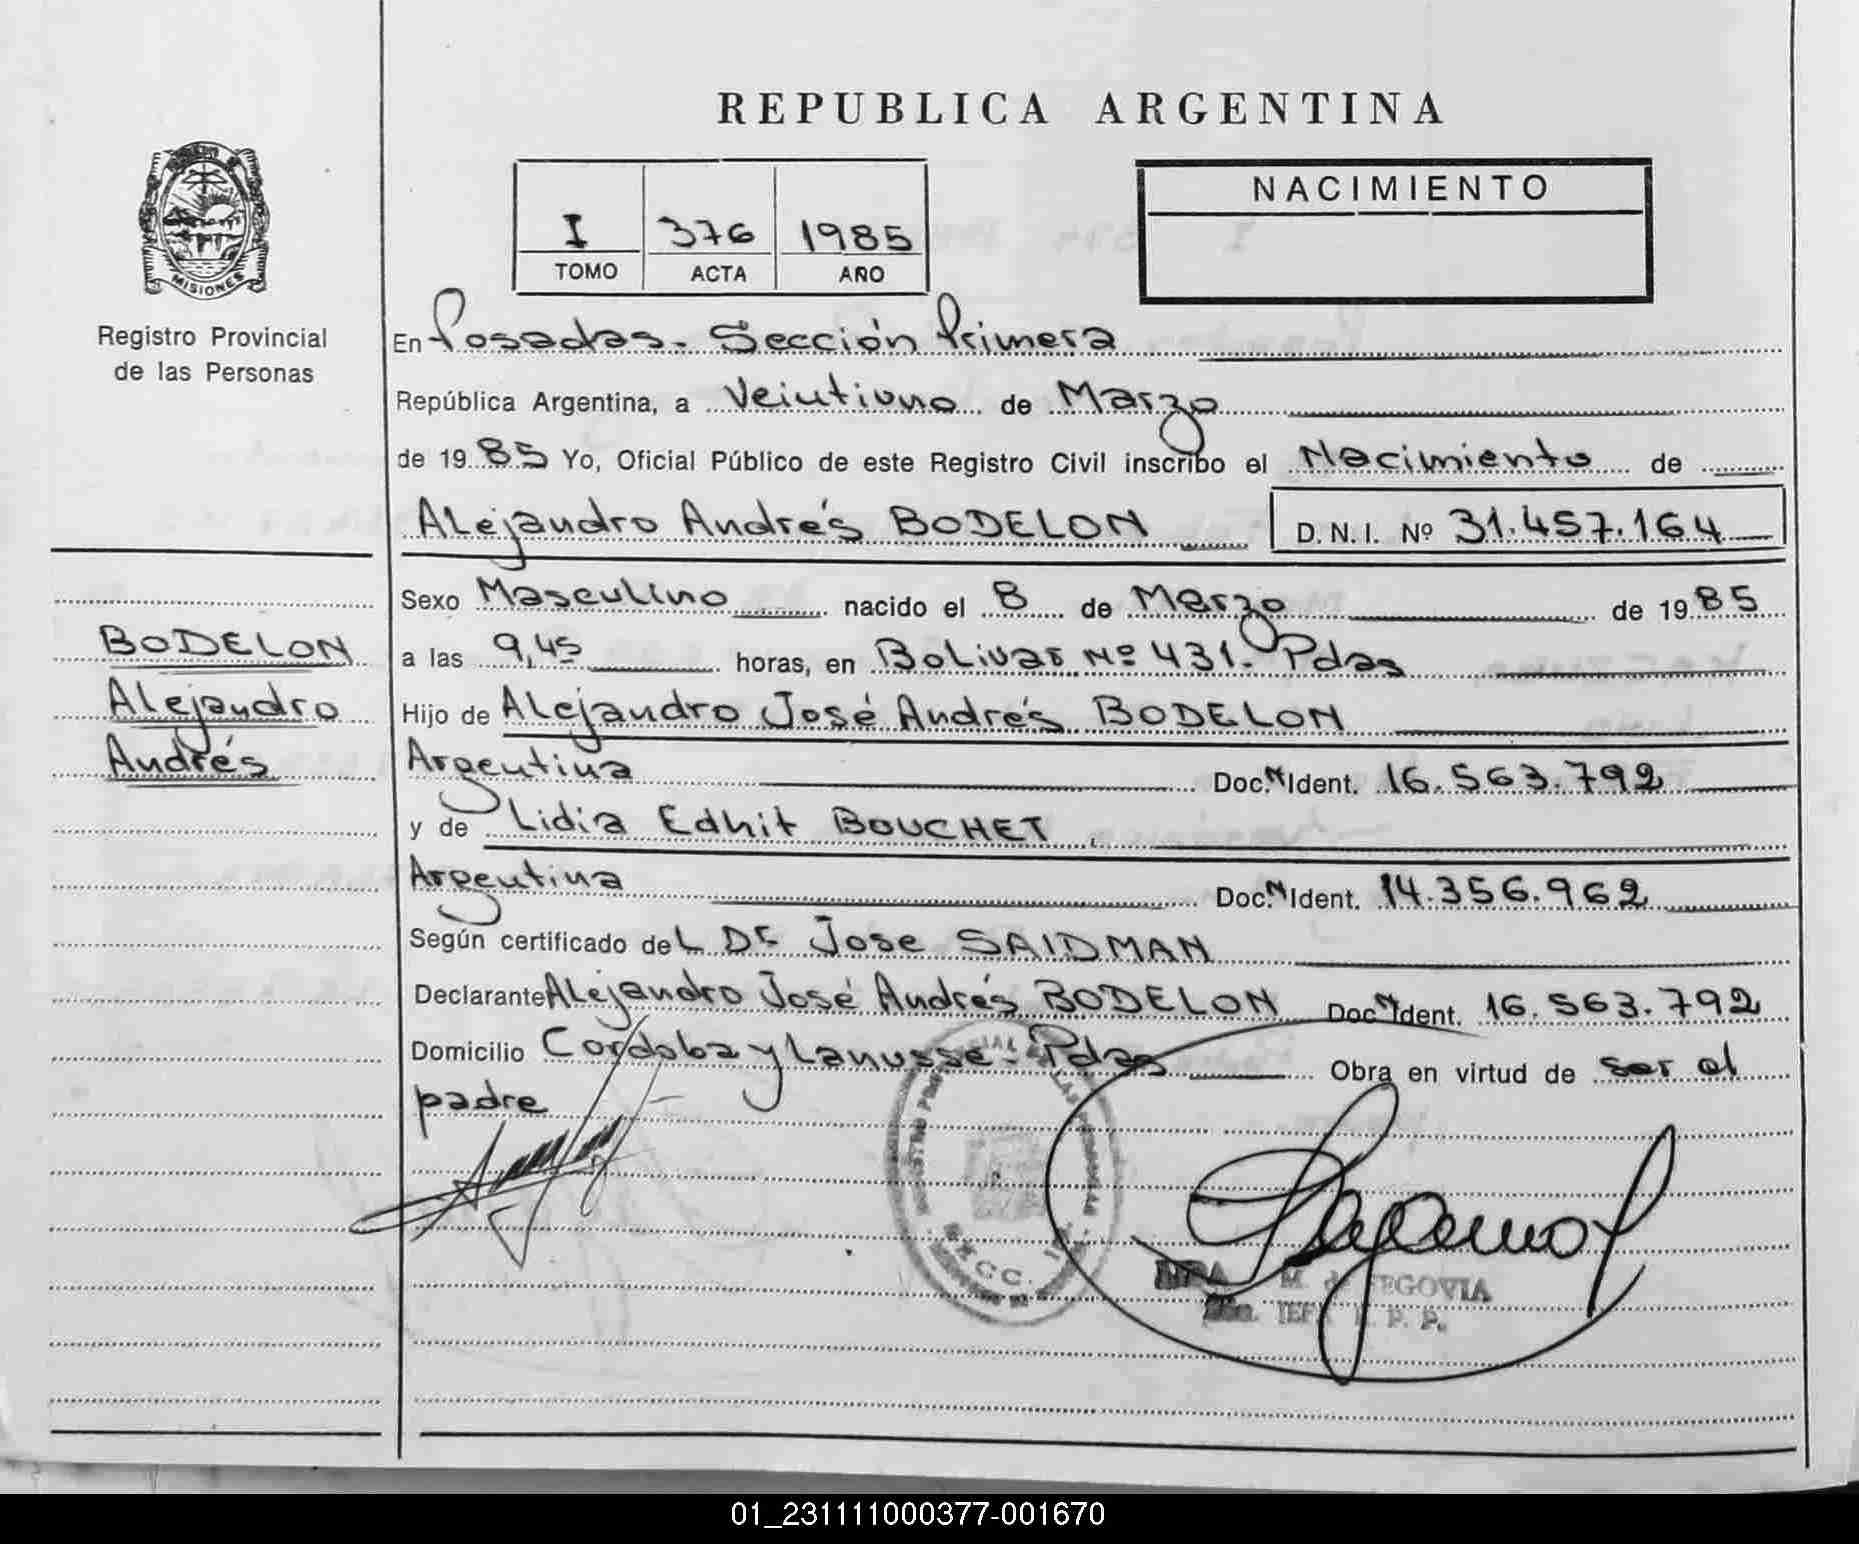 REPUBLICA ARGENTINA
MISIONES
Registro Provincial
de las Personas
I 376 1985
TOMO ACTA AÑO
NACIMIENTO
En Posadas. Sección Primera
República Argentina, a Veintiuno de Marzo
de 1985 Yo, Oficial Público de este Registro Civil inscribo el Nacimiento de
Alejandro Andrés BODELON D. N. I. Nº 31.457.164
BODELON
Alejandro
Andrés
Sexo Masculino nacido el 8 de Marzo de 1985
a las 9,45 horas, en Bolivar Nº 431. Pdas
Hijo de Alejandro José Andrés BODELON
Argentina Doc. N Ident. 16.563.792
y de Lidia Edhit BOUCHET
Argentina Doc. N Ident. 14.356.962
Según certificado del Dr Jose SAIDMAN
Declarante Alejandro José Andrés BODELON Doc. N Ident. 16.563.792
Domicilio Cordoba y Lanusse - Pdas Obra en virtud de ser el
padre
M. de SEGOVIA
01_231111000377-001670